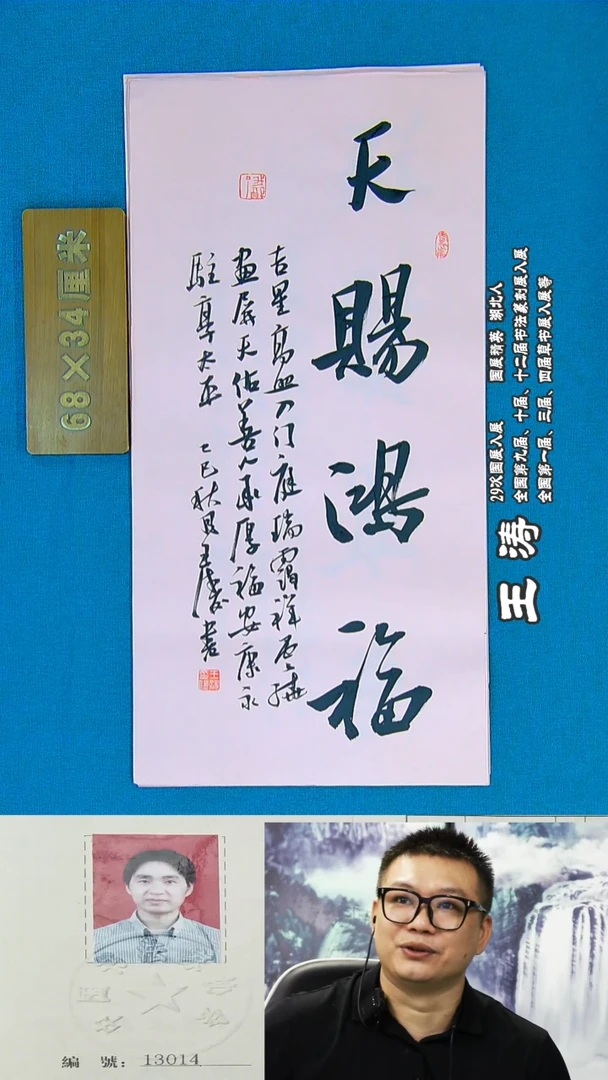 天赐鸿福
吉星高照入门庭瑞霭祥云绕
画屏天佑善人承厚福安康永
驻享太平 乙巳秋月王涛书
68×34厘米
王涛
29次国展入展 国展精英 湖北人
全国第九届、十届、十二届书法篆刻展入展
全国第一届、三届、四届草书展入展等
編 號: 13014